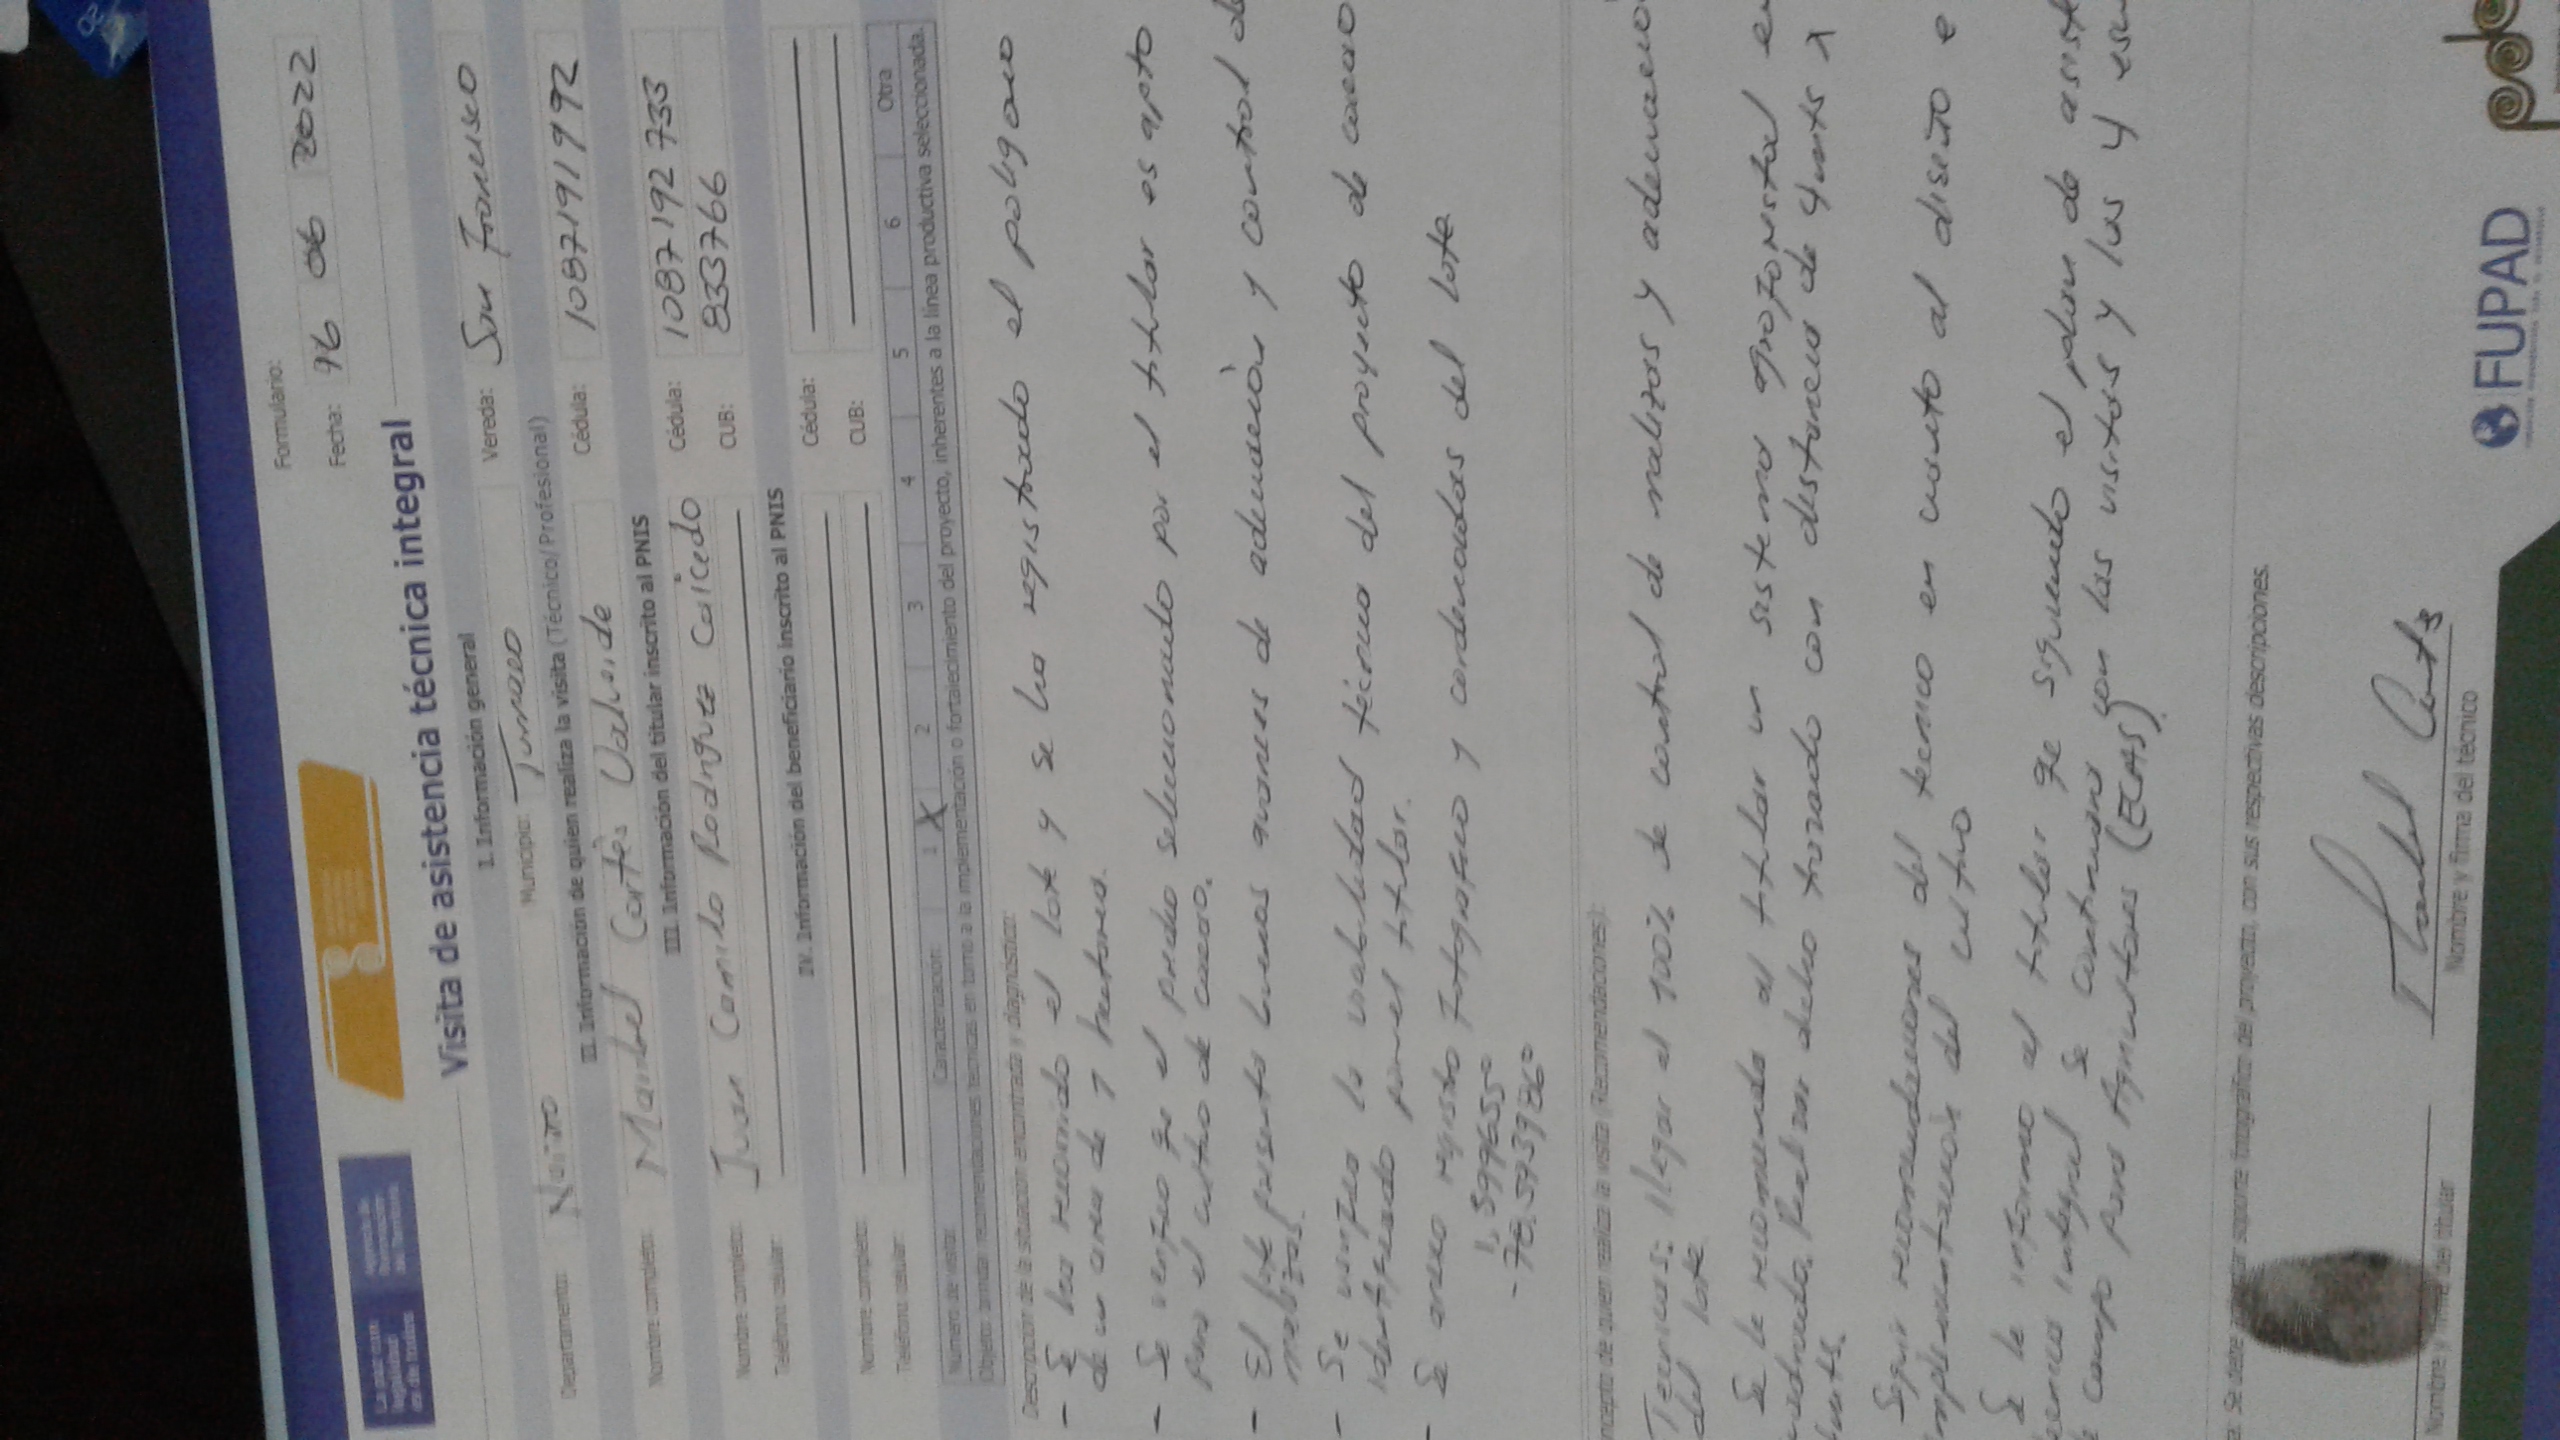 Formulario:
Fecha: 16 06 2022
Visita de asistencia técnica integral
I. Información general
Departamento: Nariño Municipio: Tumaco Vereda: San Francisco
II. Información de quien realiza la visita (Técnico/Profesional)
Nombre completo: Maribel Cortès Valverde Cédula: 1087191992
III. Información del titular inscrito al PNIS
Nombre completo: Juan Camilo Rodriguez Caicedo Cédula: 1087192733
Teléfono celular: CUB: 833766
IV. Información del beneficiario inscrito al PNIS
Nombre completo: Cédula:
Teléfono celular: CUB:
Número de visita: Caracterización: 1 X 2 3 4 5 6 Otra
Objeto: brindar recomendaciones técnicas en torno a la implementación o fortalecimiento del proyecto, inherentes a la línea productiva seleccionada.
Descripción de la situación encontrada y diagnóstico:
- Se ha recorrido el lote y se ha registrado el poligono
de un area de 1 hectarea.
- Se verifico qe el predio seleccionado por el titular es apto
para el cultivo de cacao.
- El lote presenta buenos avances de adecuación y control de
malezas.
- Se verifico la viabilidad técnica del proyecto de cacao
identificado por el titular.
- Se anexo registro fotografico y cordenadas del lote
-78.5939860
Concepto de quien realiza la visita (Recomendaciones):
Tecnicas: llegar al 100% de control de malezas y adecuación
del lote
Se le recomienda al titular un sistema agroforestal en
cuadrado. Realizar dicho trazado con distancias de 4 mts x
4 mts.
Seguir recomendaciones del tecnico en cuanto al diseño e
implementación del cultivo
Se le informo al titular qe siguiendo el plan de asist
tecnica integral se continuara con las visitas y las 4 escu
de campo para Agricultores (ECAS).
Nota: Se debe soporte fotográfico del proyecto, con sus respectivas descripciones.
Maribel Cortés
Nombre y firma del titular Nombre y firma del técnico
FUPAD